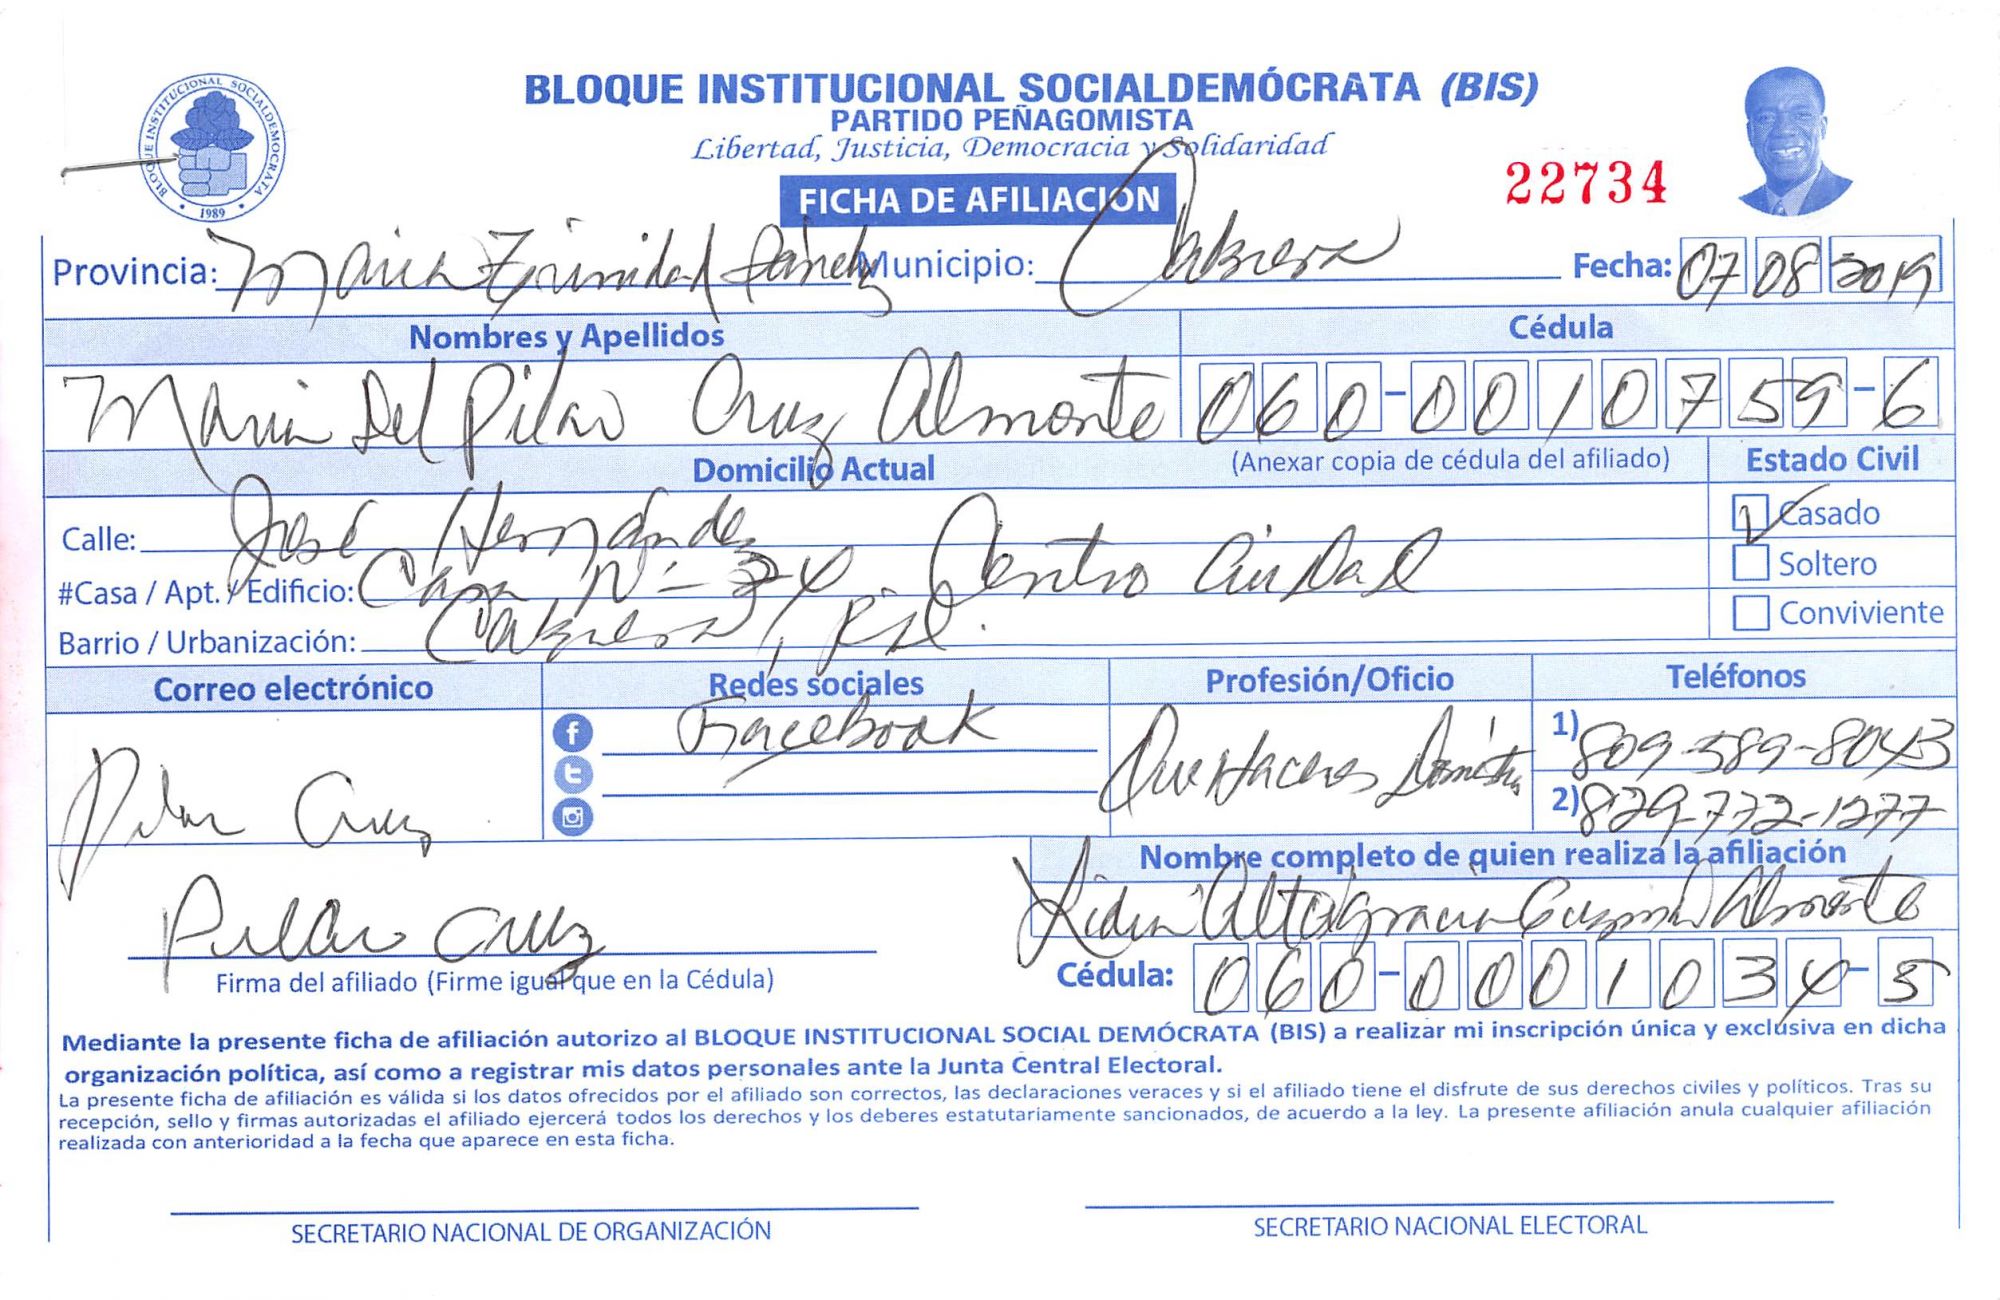 BLOQUE INSTITUCIONAL SOCIALDEMÓCRATA (BIS)
PARTIDO PEÑAGOMISTA
Libertad, Justicia, Democracia y Solidaridad
BLOQUE INSTITUCIONAL SOCIALDEMOCRATA
1989
22734
FICHA DE AFILIACIÓN
Provincia: Maria Trinidad Sánchez Municipio: Cabrera Fecha: 07 08 2019
Nombres y Apellidos Cédula
Maria Del Pilar Cruz Almonte 060-0010759-6
Domicilio Actual (Anexar copia de cédula del afiliado) Estado Civil
Calle: José Hernández Casado
#Casa / Apt. / Edificio: Casa Nº 34 Centro Ciudad Soltero
Barrio / Urbanización: Cabrera, R.D. Conviviente
Correo electrónico Redes sociales Profesión/Oficio Teléfonos
Pilar Cruz Facebook Que Haceres Domésticos 1) 809-589-8043
2) 829-772-1277
Nombre completo de quien realiza la afiliación
Pilar Cruz Lidia Altagracia Guzmán Almonte
Firma del afiliado (Firme igual que en la Cédula) Cédula: 060-0001034-5
Mediante la presente ficha de afiliación autorizo al BLOQUE INSTITUCIONAL SOCIAL DEMÓCRATA (BIS) a realizar mi inscripción única y exclusiva en dicha
organización política, así como a registrar mis datos personales ante la Junta Central Electoral.
La presente ficha de afiliación es válida si los datos ofrecidos por el afiliado son correctos, las declaraciones veraces y si el afiliado tiene el disfrute de sus derechos civiles y políticos. Tras su
recepción, sello y firmas autorizadas el afiliado ejercerá todos los derechos y los deberes estatutariamente sancionados, de acuerdo a la ley. La presente afiliación anula cualquier afiliación
realizada con anterioridad a la fecha que aparece en esta ficha.
SECRETARIO NACIONAL DE ORGANIZACIÓN SECRETARIO NACIONAL ELECTORAL